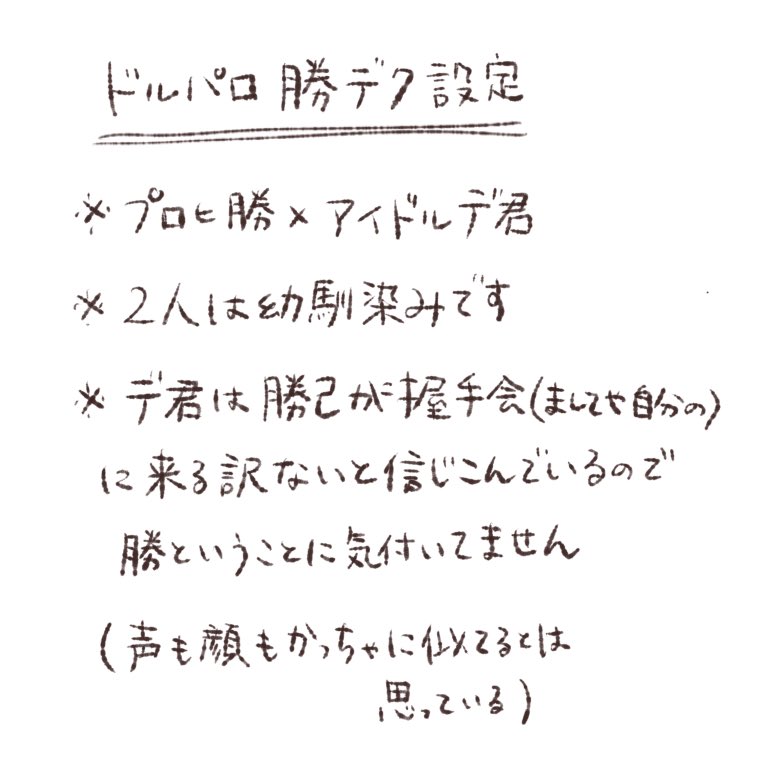 ドルパロ 勝デク設定
※ プロヒ勝×アイドルデ君
※ 2人は幼馴染みです
※ デ君は勝己が握手会(ましてや自分の)
に来る訳ないと信じこんでいるので
勝ということに気付いてません
(声も顔もかっちゃに似てるとは
思っている)